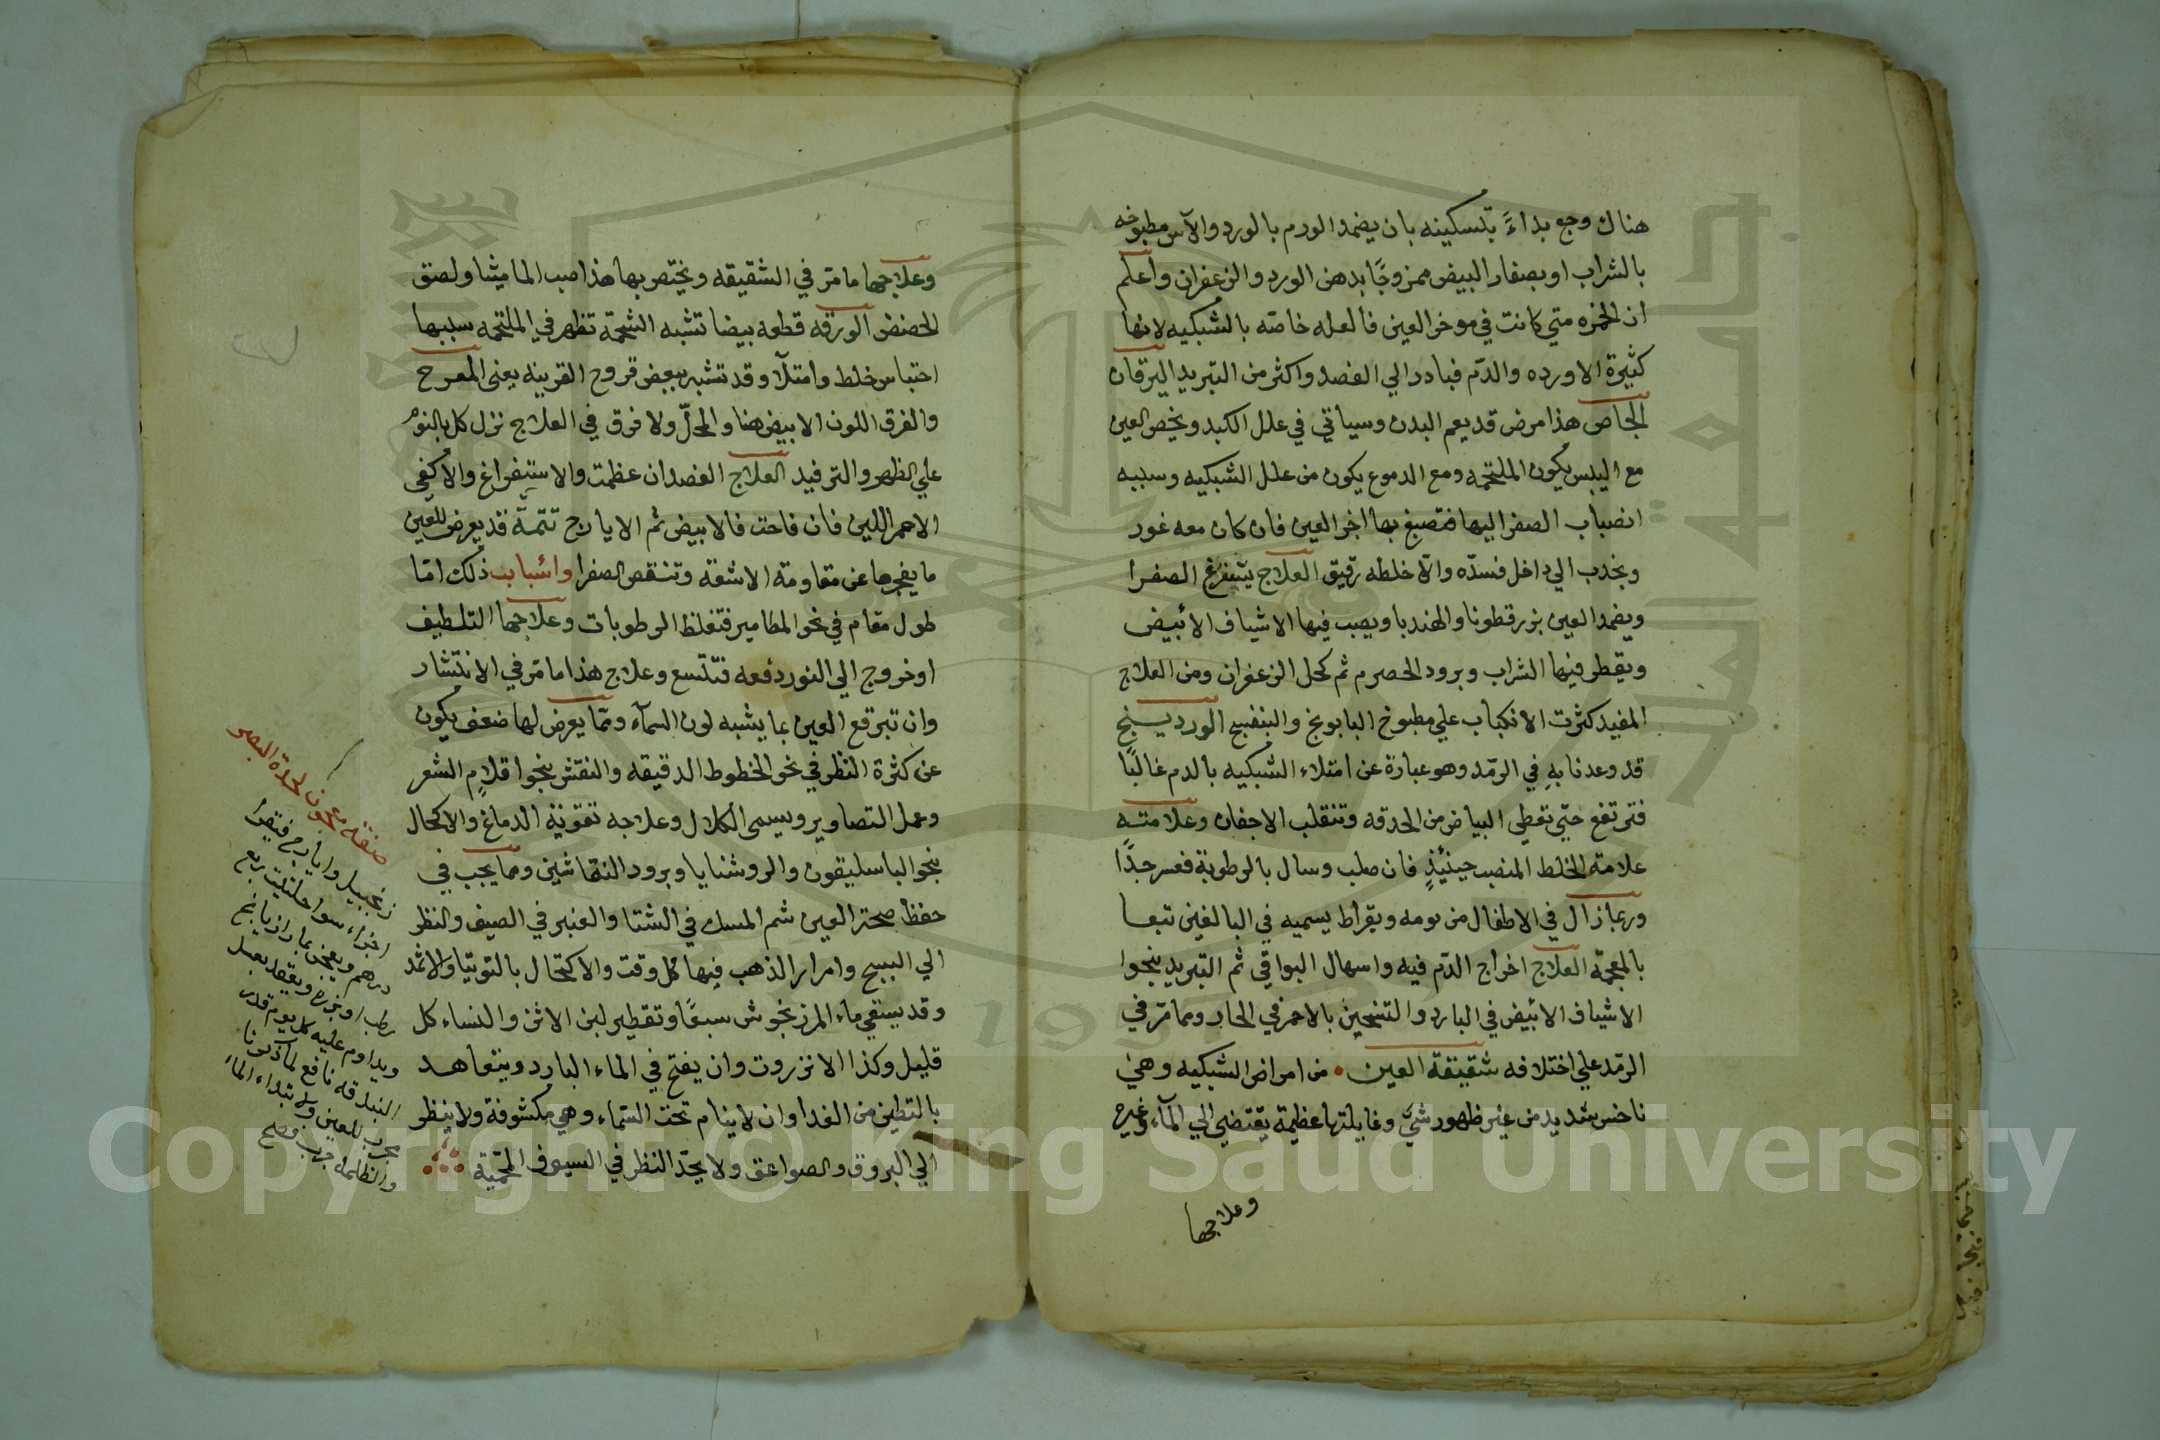 هناك وجع بداءً بتسكينه بان يضمد الورم بالورد والآس مطبوخه
بالشراب او بصفار البيض ممزوجًا بدهن الورد والزعفران واعلم
ان الحمره متي كانت في موخر العين فالعله خاصّه بالشبكيه لانها
كثيرة الاورده والدّم فبادر الي الفصد واكثر من التبريد اليرقان
الخاص هذا مرض قد يعم البدن وسياتي في علل الكبد ويخص العين
مع اليبس يكون الملتحمه ومع الدموع يكون من علل الشبكيه وسببه
انصباب الصفرا اليها فتصبغ بها اجزا العين فان كان معه غور
وبجذب الي داخل فسدّه والّا خلطه رقيق العلاج يستفرغ الصفرا
ويضمد العين بزرقطونا والهندبا ويصب فيها الاشياف الأبيض
ويقطر فيها الشراب وبرود الحصرم ثم كحل الزعفران ومن العلاج
المفيد كثرت الانكباب علي مطبوخ البابونج والبنفسج الوردينج
قد وعدنا بهِ في الرمّد وهو عبارة عن امتلاء الشبكيه بالدم غالبًا
فترتفع حتّي تغطي البياض من الحدقه وتنقلب الاجفان وعلامته
علامة الخلط المنصب حينئذٍ فان صلب وسال بالرطوبة فعسر جدًّا
وربما زال في الاطفال من يومه وبقراط يسميه في البالغين تبعا
بالمعجمّة العلاج اخراج الدّم فيه واسهال البواقي ثم التبريد بنحوا
الاشياف الأبيض في البارد والتسخين بالاحمر في الحار ومما مرّ في
الرمّد علي اختلافه شقيقة العين من امراض الشبكيه وهي
ناخس شديد من غير ظهور شي وغايلتها عظيمة يقتضي الي المآء وغيره
وعلاجها
وعلاجها ما مرّ في الشقيقه ويختص بها هذا صب الماميثا ولصق
الحضض الورقه قطعه بيضا تشبه الشحمّة تظهر في الملتحمه سببها
احتباس خلط وامتلآ وقد تشبه ببعض قروح القرنيه يعني المعرح
والفرق اللون الابيض هنا والمحلّ ولا فرق في العلاج نزل كل بالنوم
علي الظهر والترفيد العلاج الفصد ان عظمت والاستفراغ والا كفي
الاحمر اللين فان فاحت فالابيض ثم الايارج تتمّة قد يعرض للعين
ما يفجرها عن مقاومة الاشعة وتنقص الصفرا واسباب ذلك امّا
طول مقام في نحو المطامير فتغلظ الرطوبات وعلاجها التلطيف
او خروج الي النور دفعه فتتسع وعلاج هذا ما مرّ في الانتشار
وان تبرقع العين بما يشبه لون السمآء وممّا يعرض لها ضعف يكون
عن كثرة النظر في نحو الخطوط الدقيقه والنقش بنحوا قلامِ الشعر
وعمل التصاوير ويسمي الكلال وعلاجه تقوية الدماغ والاكحال
بنحو الباسليقون والروشنايا وبرود النقاشين ومما يجب في
حفظ صحة العين شم المسك في الشتا والعنبر في الصيف والنظر
الي السبج وامرار الذهب فيها كل وقت والاكتحال بالتوتيا والاثمد
وقد يستقي ماء المرزنجوش سبعًا وتقطير لبن الاتن والنساء كل
قليل وكذا الانزروت وان يفتح في الماء البارد ويتعاهد
بالتطين من الغدا وان لا ينام تحت السّماء وهي مكشوفة ولا ينظر
الي البروق والصواعق ولا يحدّ النظر في السيوف المحمّية
صفة معجون لحدة البصر
زنجبيل وايارج فيقرا
اجزاء سوا حلتيت ربع
درهم ويعجن بما رازيانج
رطب او بزره ويعقد بعسل
ويداوم عليه كل يوم قدر
البندقه نافع لما ذكرنا
مجرب للعين ولابتداء الماء
والظلمة مجرب صحيح
Copyright © King Saud University
1957